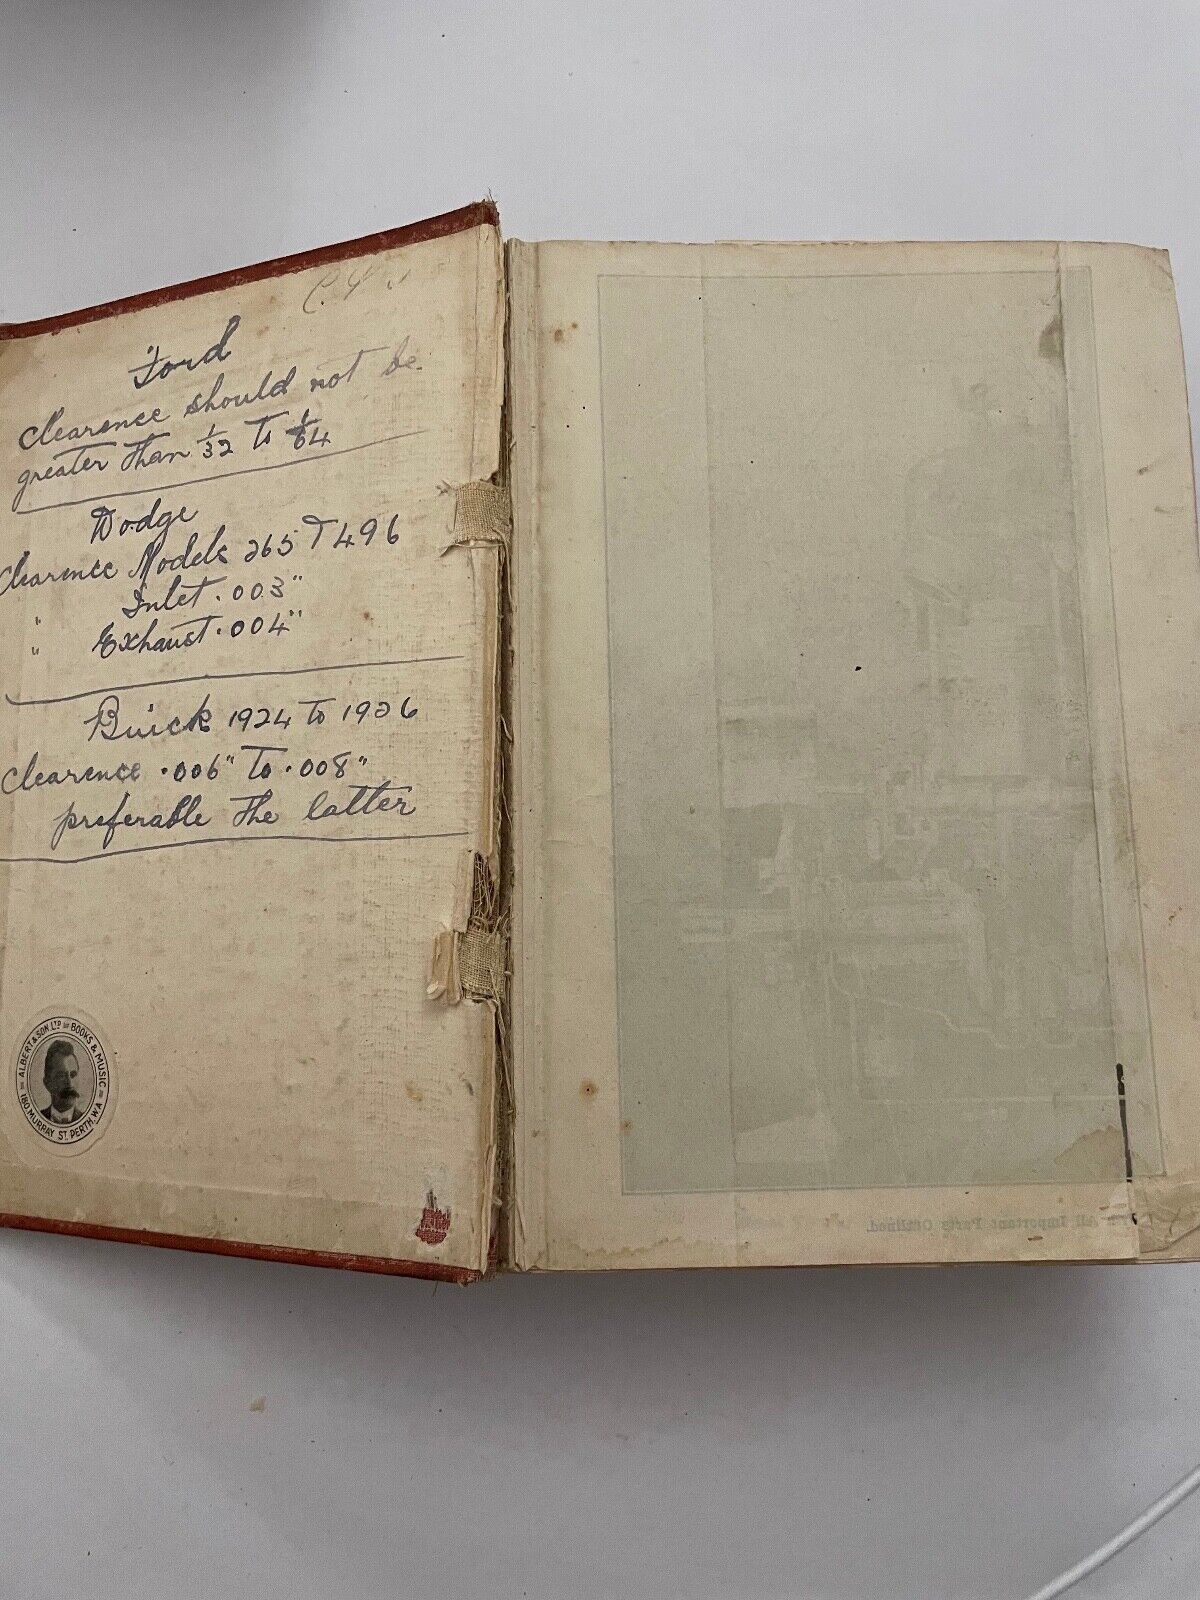 Ford
Clearence should not be
greater than 1/32 to 1/64
Dodge
Clearence Models 265 & 496
" Inlet .003"
" Exhaust .004"
Buick 1924 to 1926
Clearence .006" to .008"
preferable the latter
ALBERT & SON LTD BOOKS & MUSIC
180 MURRAY ST. PERTH, W.A.
All Important Parts Outlined.